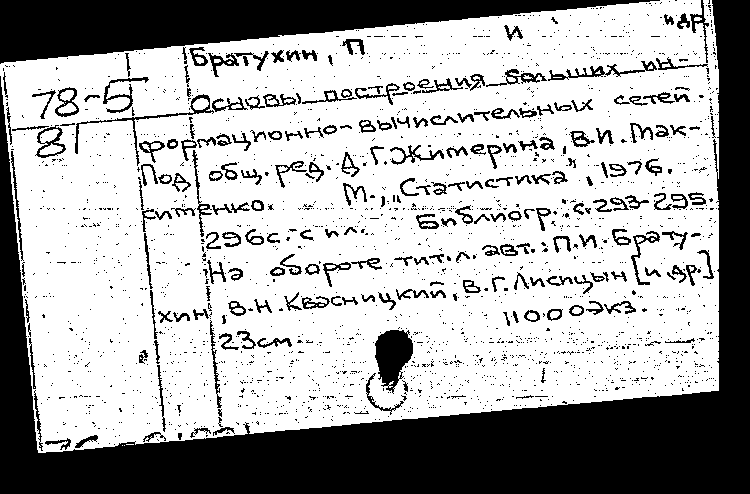 Братухин, П И и др.
78-5
Основы построения больших ин-
81
формационно-вычислительных сетей.
Под общ. ред. Д.Г. Жимерина, В.И. Мак-
сименко. М., „Статистика", 1976.
296с. с ил. Библиогр.: с. 293-295.
На обороте тит. л. авт.: П.И. Брату-
хин, В.Н. Квасницкий, В.Г. Лисицын [и др.].
23см. 11000экз.